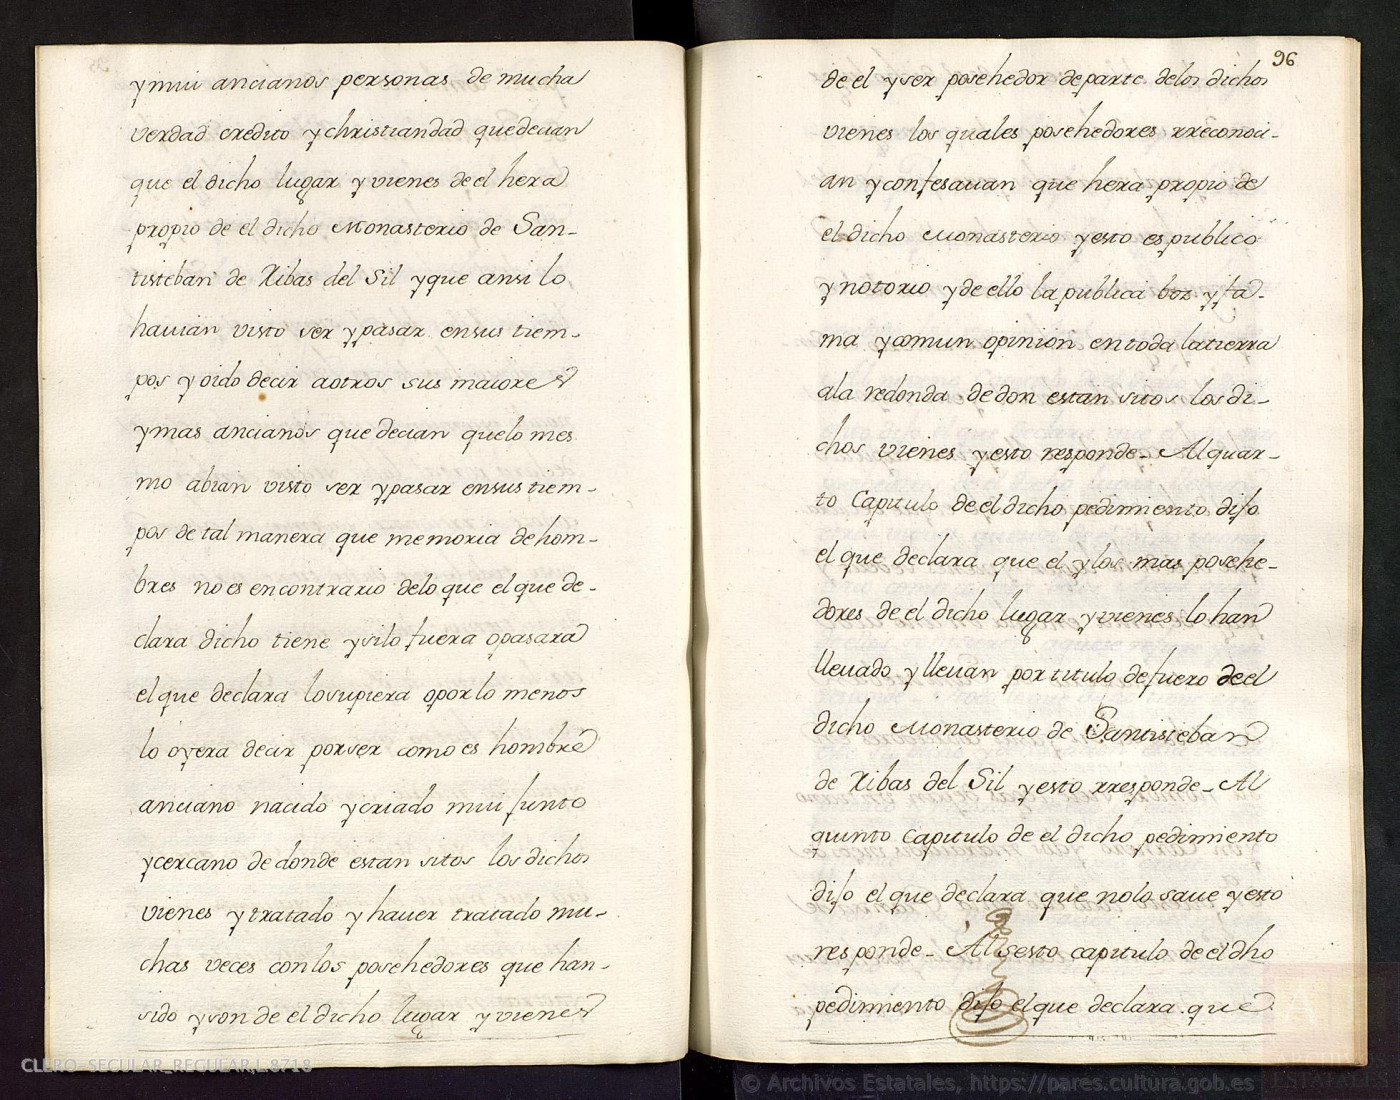 y mui ancianos personas de mucha
verdad credito y christiandad que decian
que el dicho lugar y vienes de el hera
propio de el dicho Monasterio de San-
tisteban de Ribas del Sil y que ansi lo
hauian visto ser y pasar en sus tiem-
pos y oido decir a otros sus maiores
y mas ancianos que decian que lo mes
mo abian visto ser y pasar en sus tiem-
pos de tal manera que memoria de hom-
bres no es en contrario de lo que el que de-
clara dicho tiene y si lo fuera o pasara
el que declara lo supiera o por lo menos
lo oyera decir por ser como es hombre
anciano nacido y criado mui junto
y cercano de donde estan sitos los dichos
vienes y tratado y hauer tratado mu-
chas veces con los posehedores que han
sido y son de el dicho lugar y vienes
96
de el y ser posehedor de parte de los dichos
vienes los quales posehedores rreconoci-
an y confesauan que hera propio de
el dicho Monasterio y esto es publico
y notorio y de ello la publica boz y fa-
ma y comun opinion en toda la tierra
a la redonda de don estan sitos los di-
chos vienes y esto responde- Al quar-
to Capitulo de el dicho pedimiento dijo
el que declara que el y los mas posehe-
dores de el dicho lugar y vienes lo han
lleuado y lleuan por titulo de fuero de el
dicho Monasterio de Santisteban
de Ribas del Sil y esto rresponde- Al
quinto Capitulo de el dicho pedimiento
dijo el que declara que no lo saue y esto
responde- Al sesto capitulo de el dho
pedimiento dijo el que declara que
CLERO-SECULAR_REGULAR,L.8718
© Archivos Estatales, https://pares.cultura.gob.es